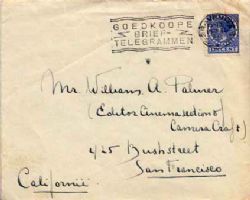 GOEDKOOPE
BRIEF-
TELEGRAMMEN
Mr. Williams A. Palmer
(Editor Cinema section of
Camera Craft)
425 Bush street
San Francisco
Californië